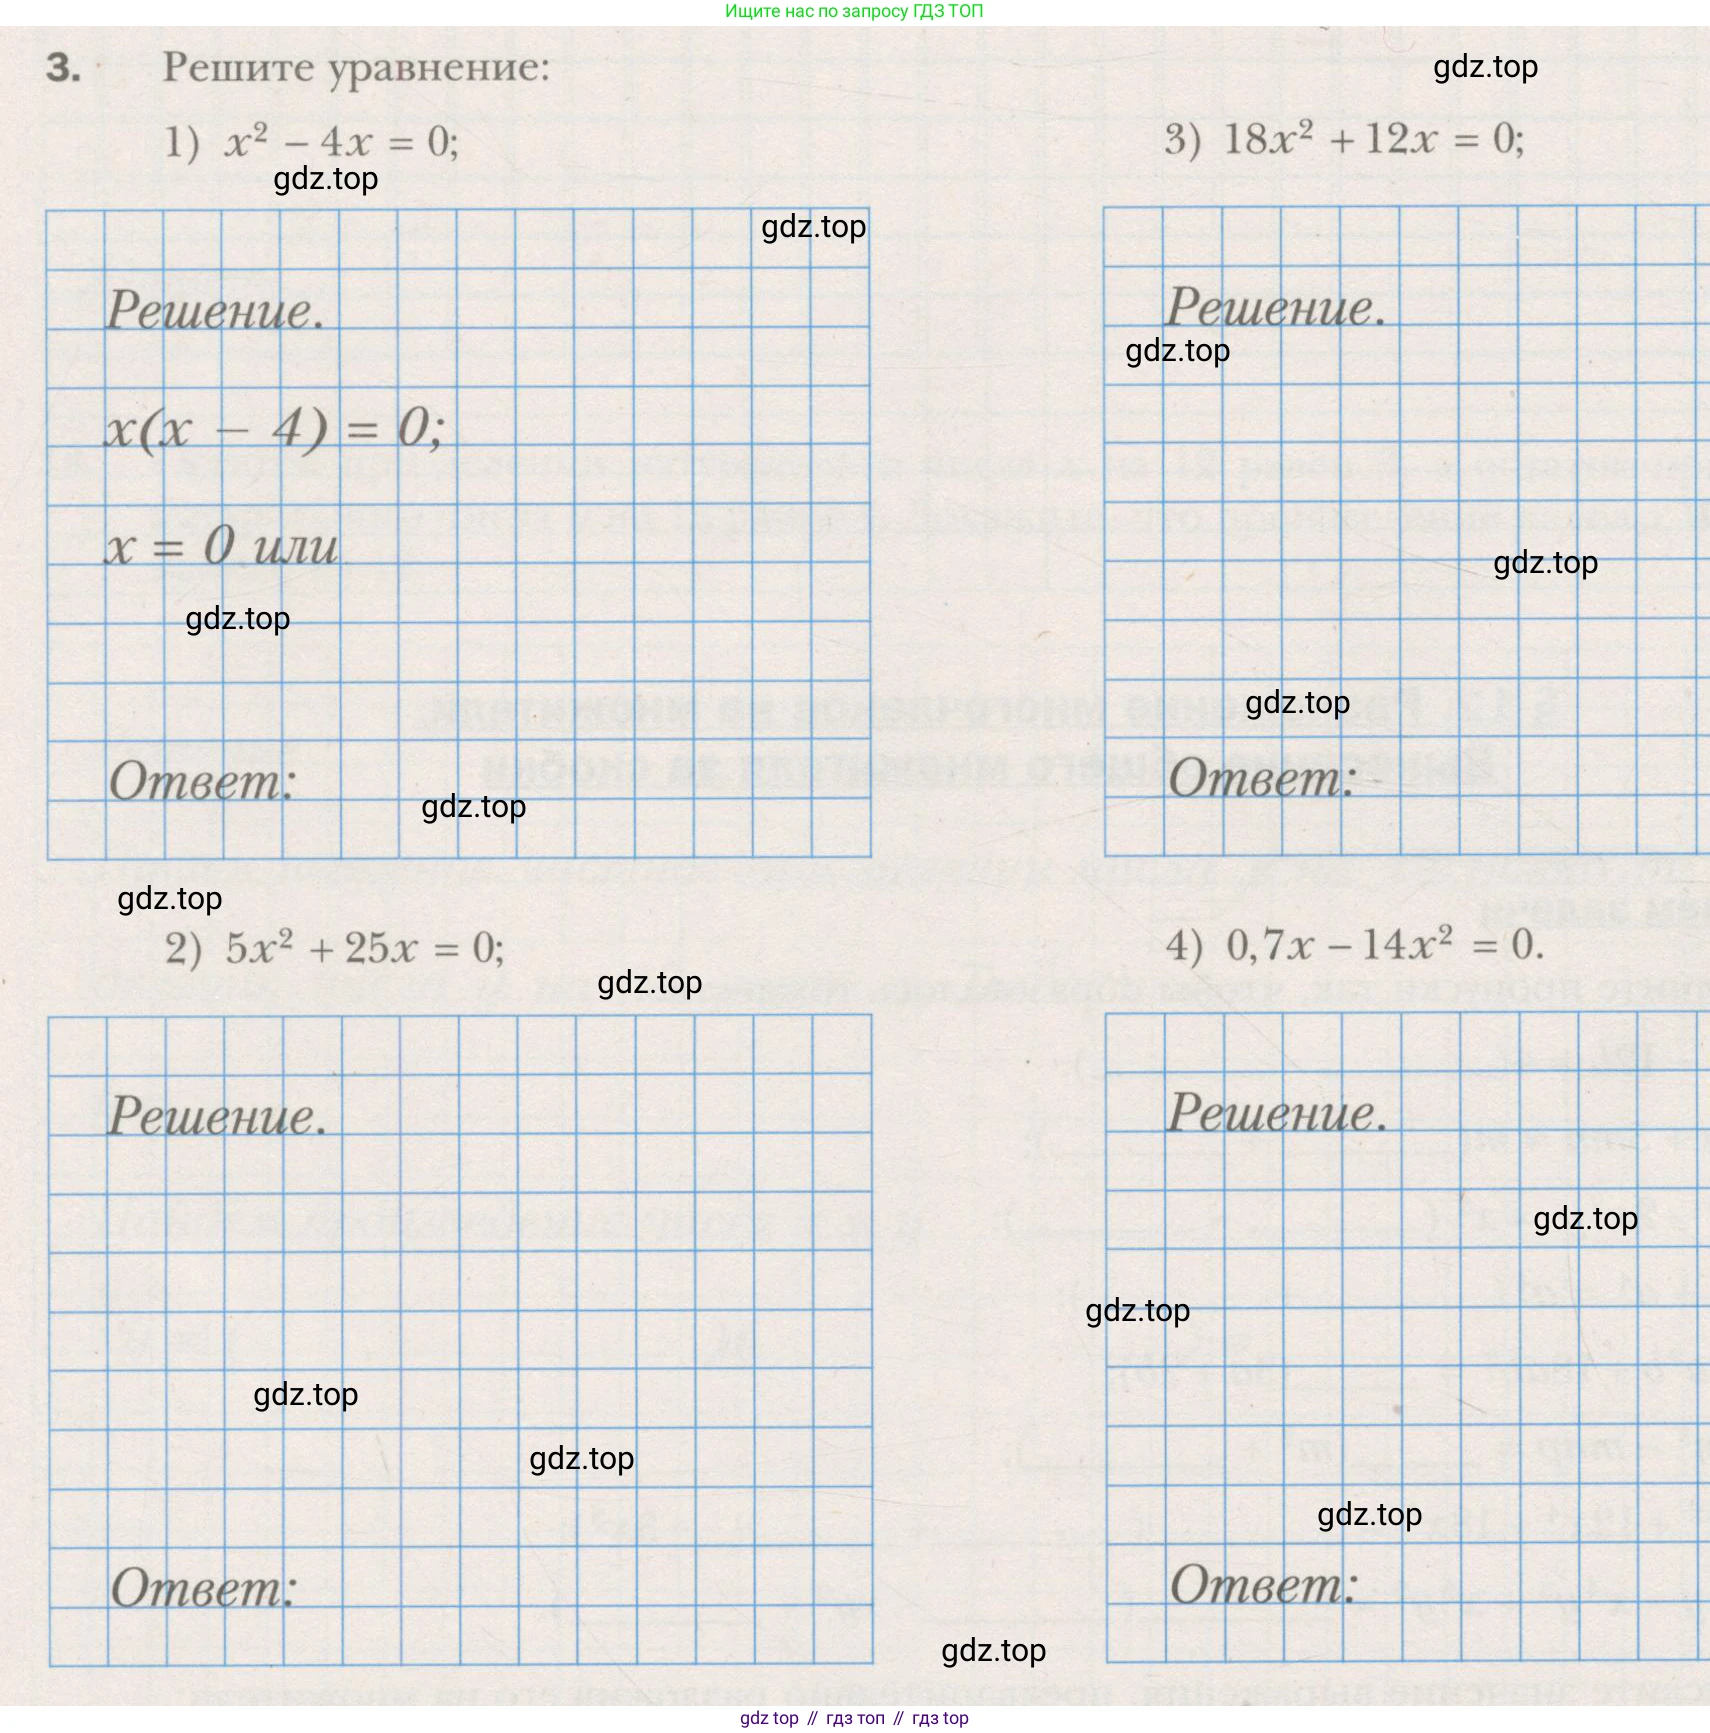 Ищите нас по запросу ГДЗ ТОП
3. Решите уравнение:
gdz.top
1) x² − 4x = 0;
gdz.top
gdz.top
Решение.
x(x − 4) = 0;
x = 0 или
gdz.top
Ответ:
gdz.top
gdz.top
2) 5x² + 25x = 0;
gdz.top
Решение.
gdz.top
gdz.top
Ответ:
3) 18x² + 12x = 0;
Решение.
gdz.top
gdz.top
gdz.top
Ответ:
4) 0,7x − 14x² = 0.
Решение.
gdz.top
gdz.top
gdz.top
Ответ:
gdz.top
gdz top // гдз топ // гдз top